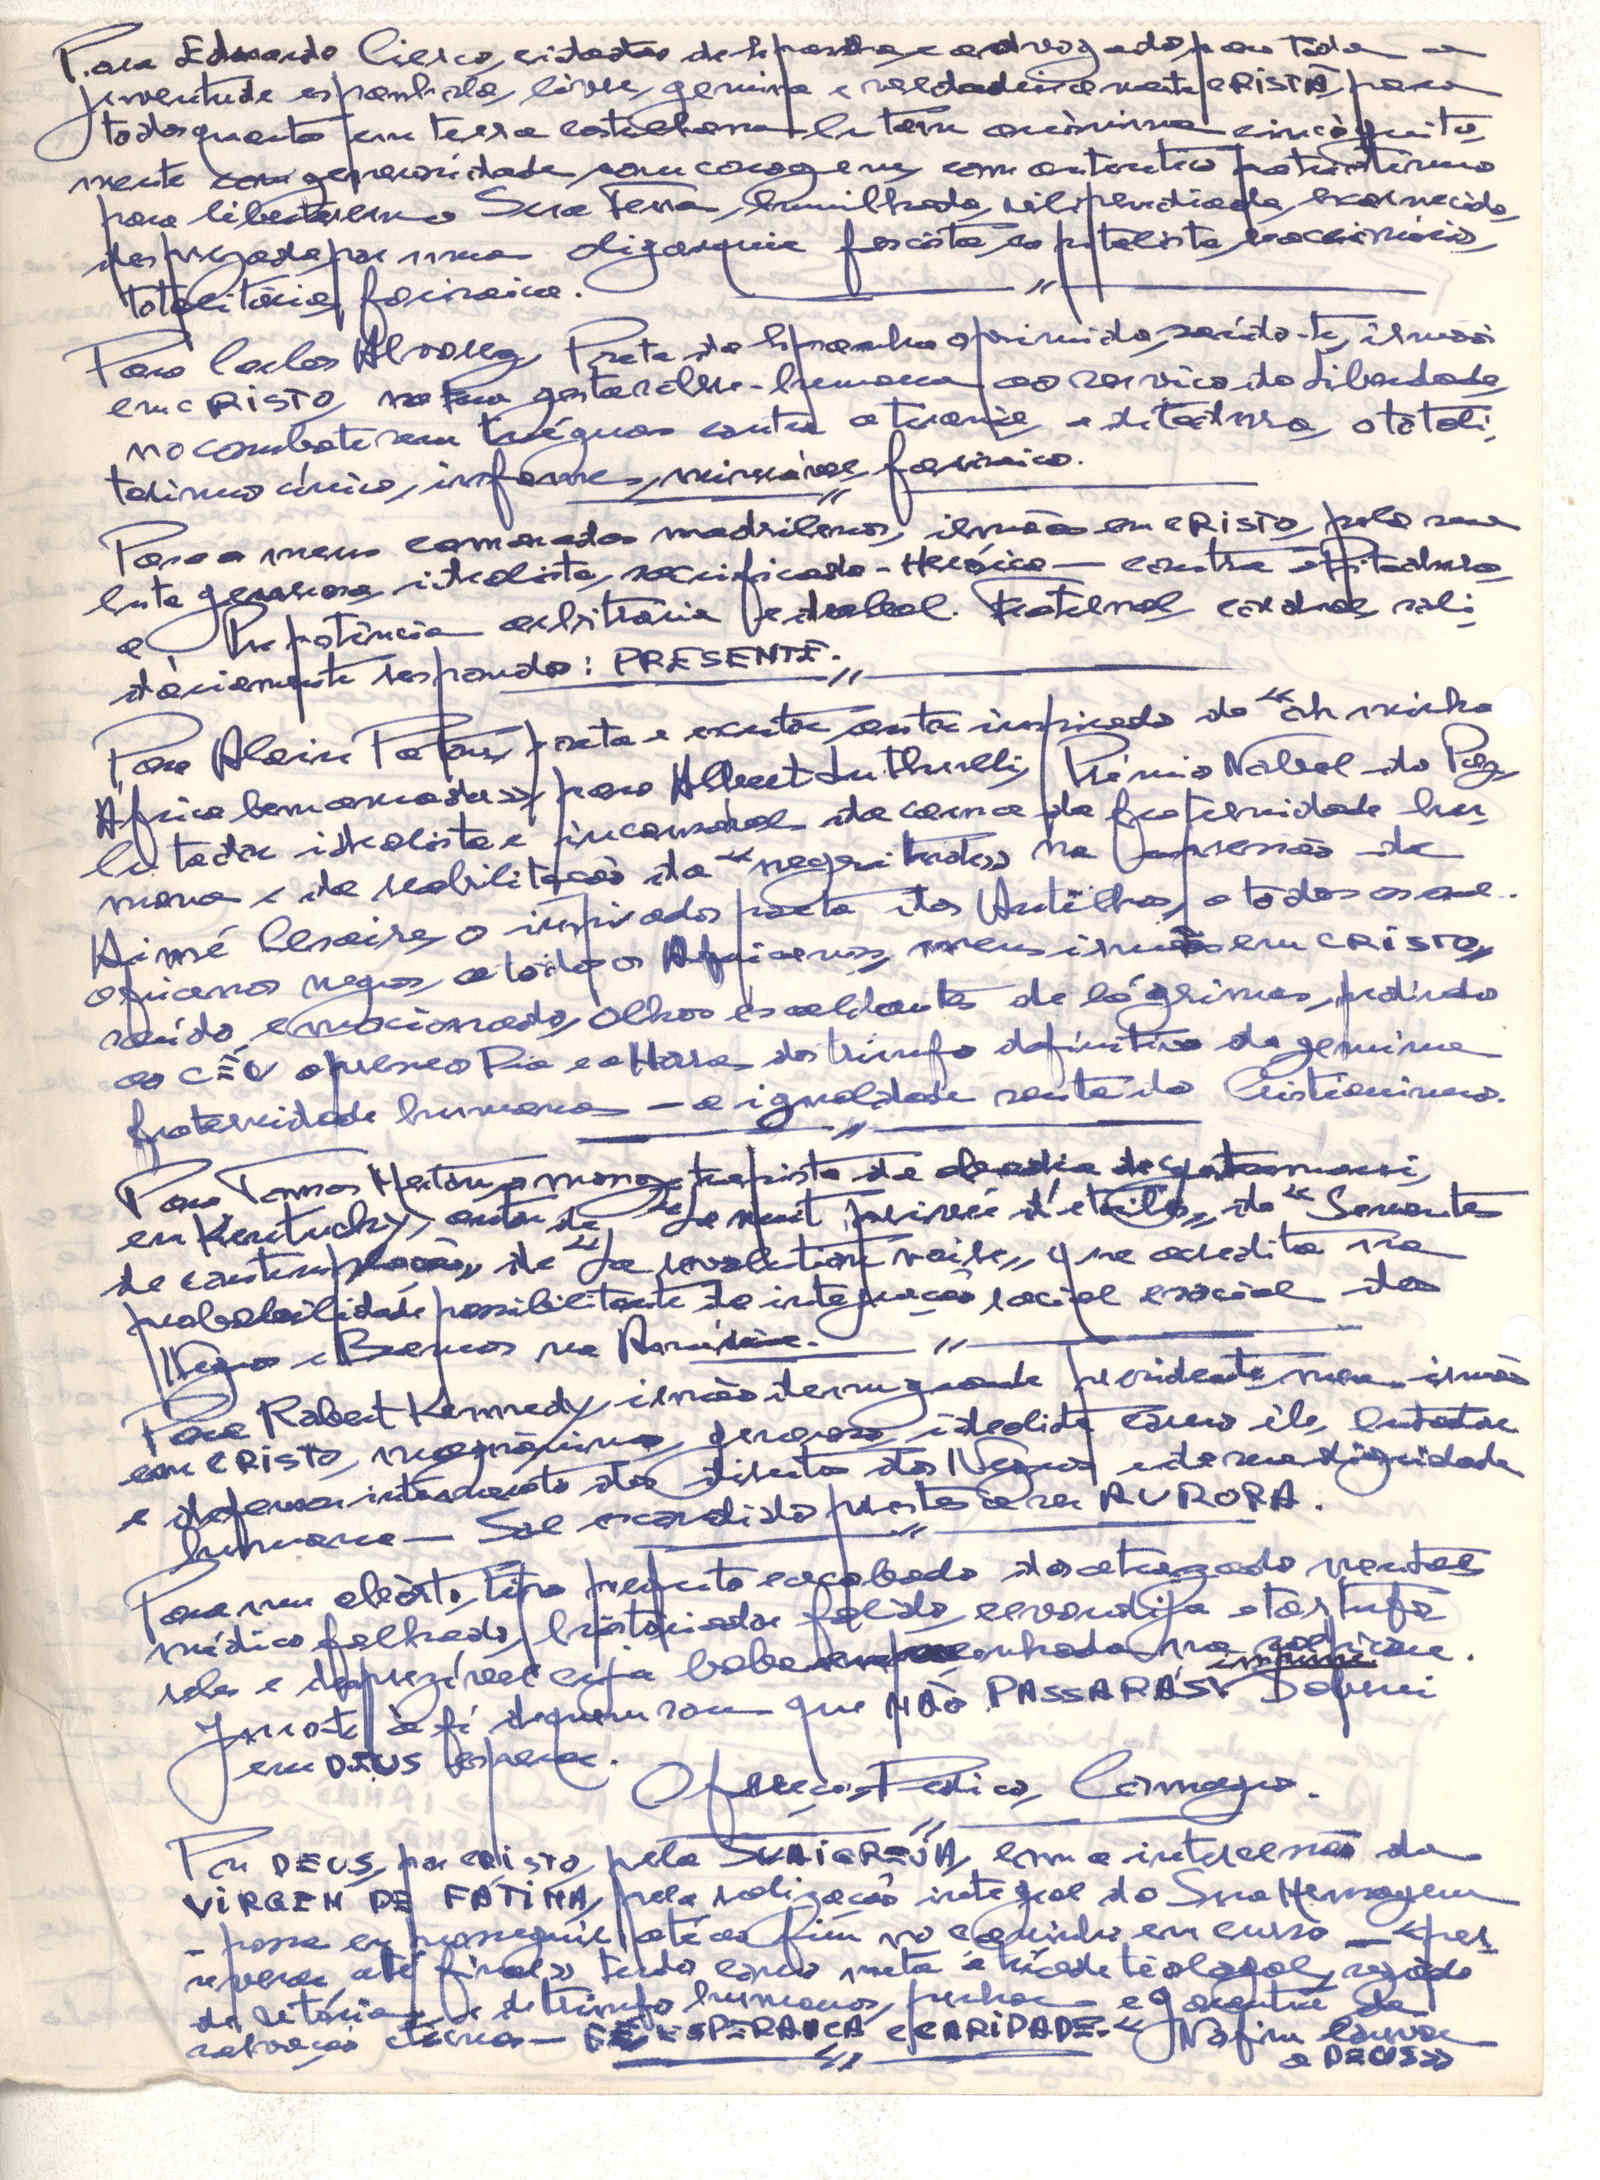 Para Eduardo Cierco, cidadão de Espanha e advogado, para toda a
juventude espanhola, livre, genuina e verdadeiramente CRISTÃ, para
todos quanto em terra castelhana lutam anónima e incógnita,
mente com generosidade, com coragem, com autentico patriotismo
para libertarem a Sua Terra, humilhada, vilipendiada, escarnecida,
desprezada por uma oligarquia fascista, capitalista, reaccionária,
totalitária, farisaica.
Para Carlos Alvarez, Poeta da Espanha oprimida, saúdo-te, irmão
em CRISTO, na tua gesta rebelde-humana ao serviço da Liberdade,
no combate sem tréguas contra a tirania, a ditadura, o totali,
tarismo cínico, infame, miserável, farisaico.
Para o meus camaradas madrilenos, irmãos em CRISTO, pela sua
luta generosa, idealista, sacrificada - Heróica - contra a Ditadura,
a Prepotência arbitrária e brutal. Fraternal, cordial, soli,
dáriamente respondo: PRESENTE.
Para Alain Paton, poeta e escritor, autor inspirado do "oh minha
África bem amada», para Albert Luthulli, Prémio Nobel da Paz,
lutador idealista e incansável da causa da fraternidade hu,
mana e da reabilitação da "negritude» na expressão de
Aimé Cesaire, o inspirado poeta das Antilhas, a todos os ame.
ricanos negros, a todos os Africanos, meus irmãos em CRISTO,
saúdo, emocionado, olhos escaldantes de lágrimas, pedindo
ao CÉU apresse o Dia e a Hora do triunfo definitivo da genuina
fraternidade humana - a igualdade santa do Cristianismo.
Para Tomas Merton, o monge trapista da abadia de Getsemani,
em Kentucky, autor de "La nuit privée d'étoiles», da "Sementes
de contemplação», de "La revolution noire», que acredita na
probabilidade possibilitante da integração racial e social dos
Negros e Brancos na América.
Para Robert Kennedy, irmão de um grande presidente, meu irmão
em CRISTO, magnânimo, generoso, idealista como êle, lutador
e defensor intemerato dos direitos dos Negros e da sua dignidade
humana - Sol escondido prestes a ser AURORA.
Para um abôrto, tipo perfeito e acabado do atrazado mental
médico falhado, historiador falido, covardia e tartufo
reles e desprezível cuja baba na
Juro-te à fé de quem sou que NÃO PASSARÁS impune Daqui
em DEUS espera.
Ofereço, Dedico, Consagro.
Por DEUS, por CRISTO, pela SUA IGREJA, com a intercessão da
VIRGEM DE FÁTIMA, pela realização integral da Sua Mensagem
- possa eu prosseguir até ao fim no caminho em curso - «per,
severar até final» tendo como meta a tríade teologal, razão
da vitória e de triunfo humanos, penhor e garantia da
salvação eterna - FÉ, ESPERANÇA e CARIDADE. "No fim louvor
a DEUS»